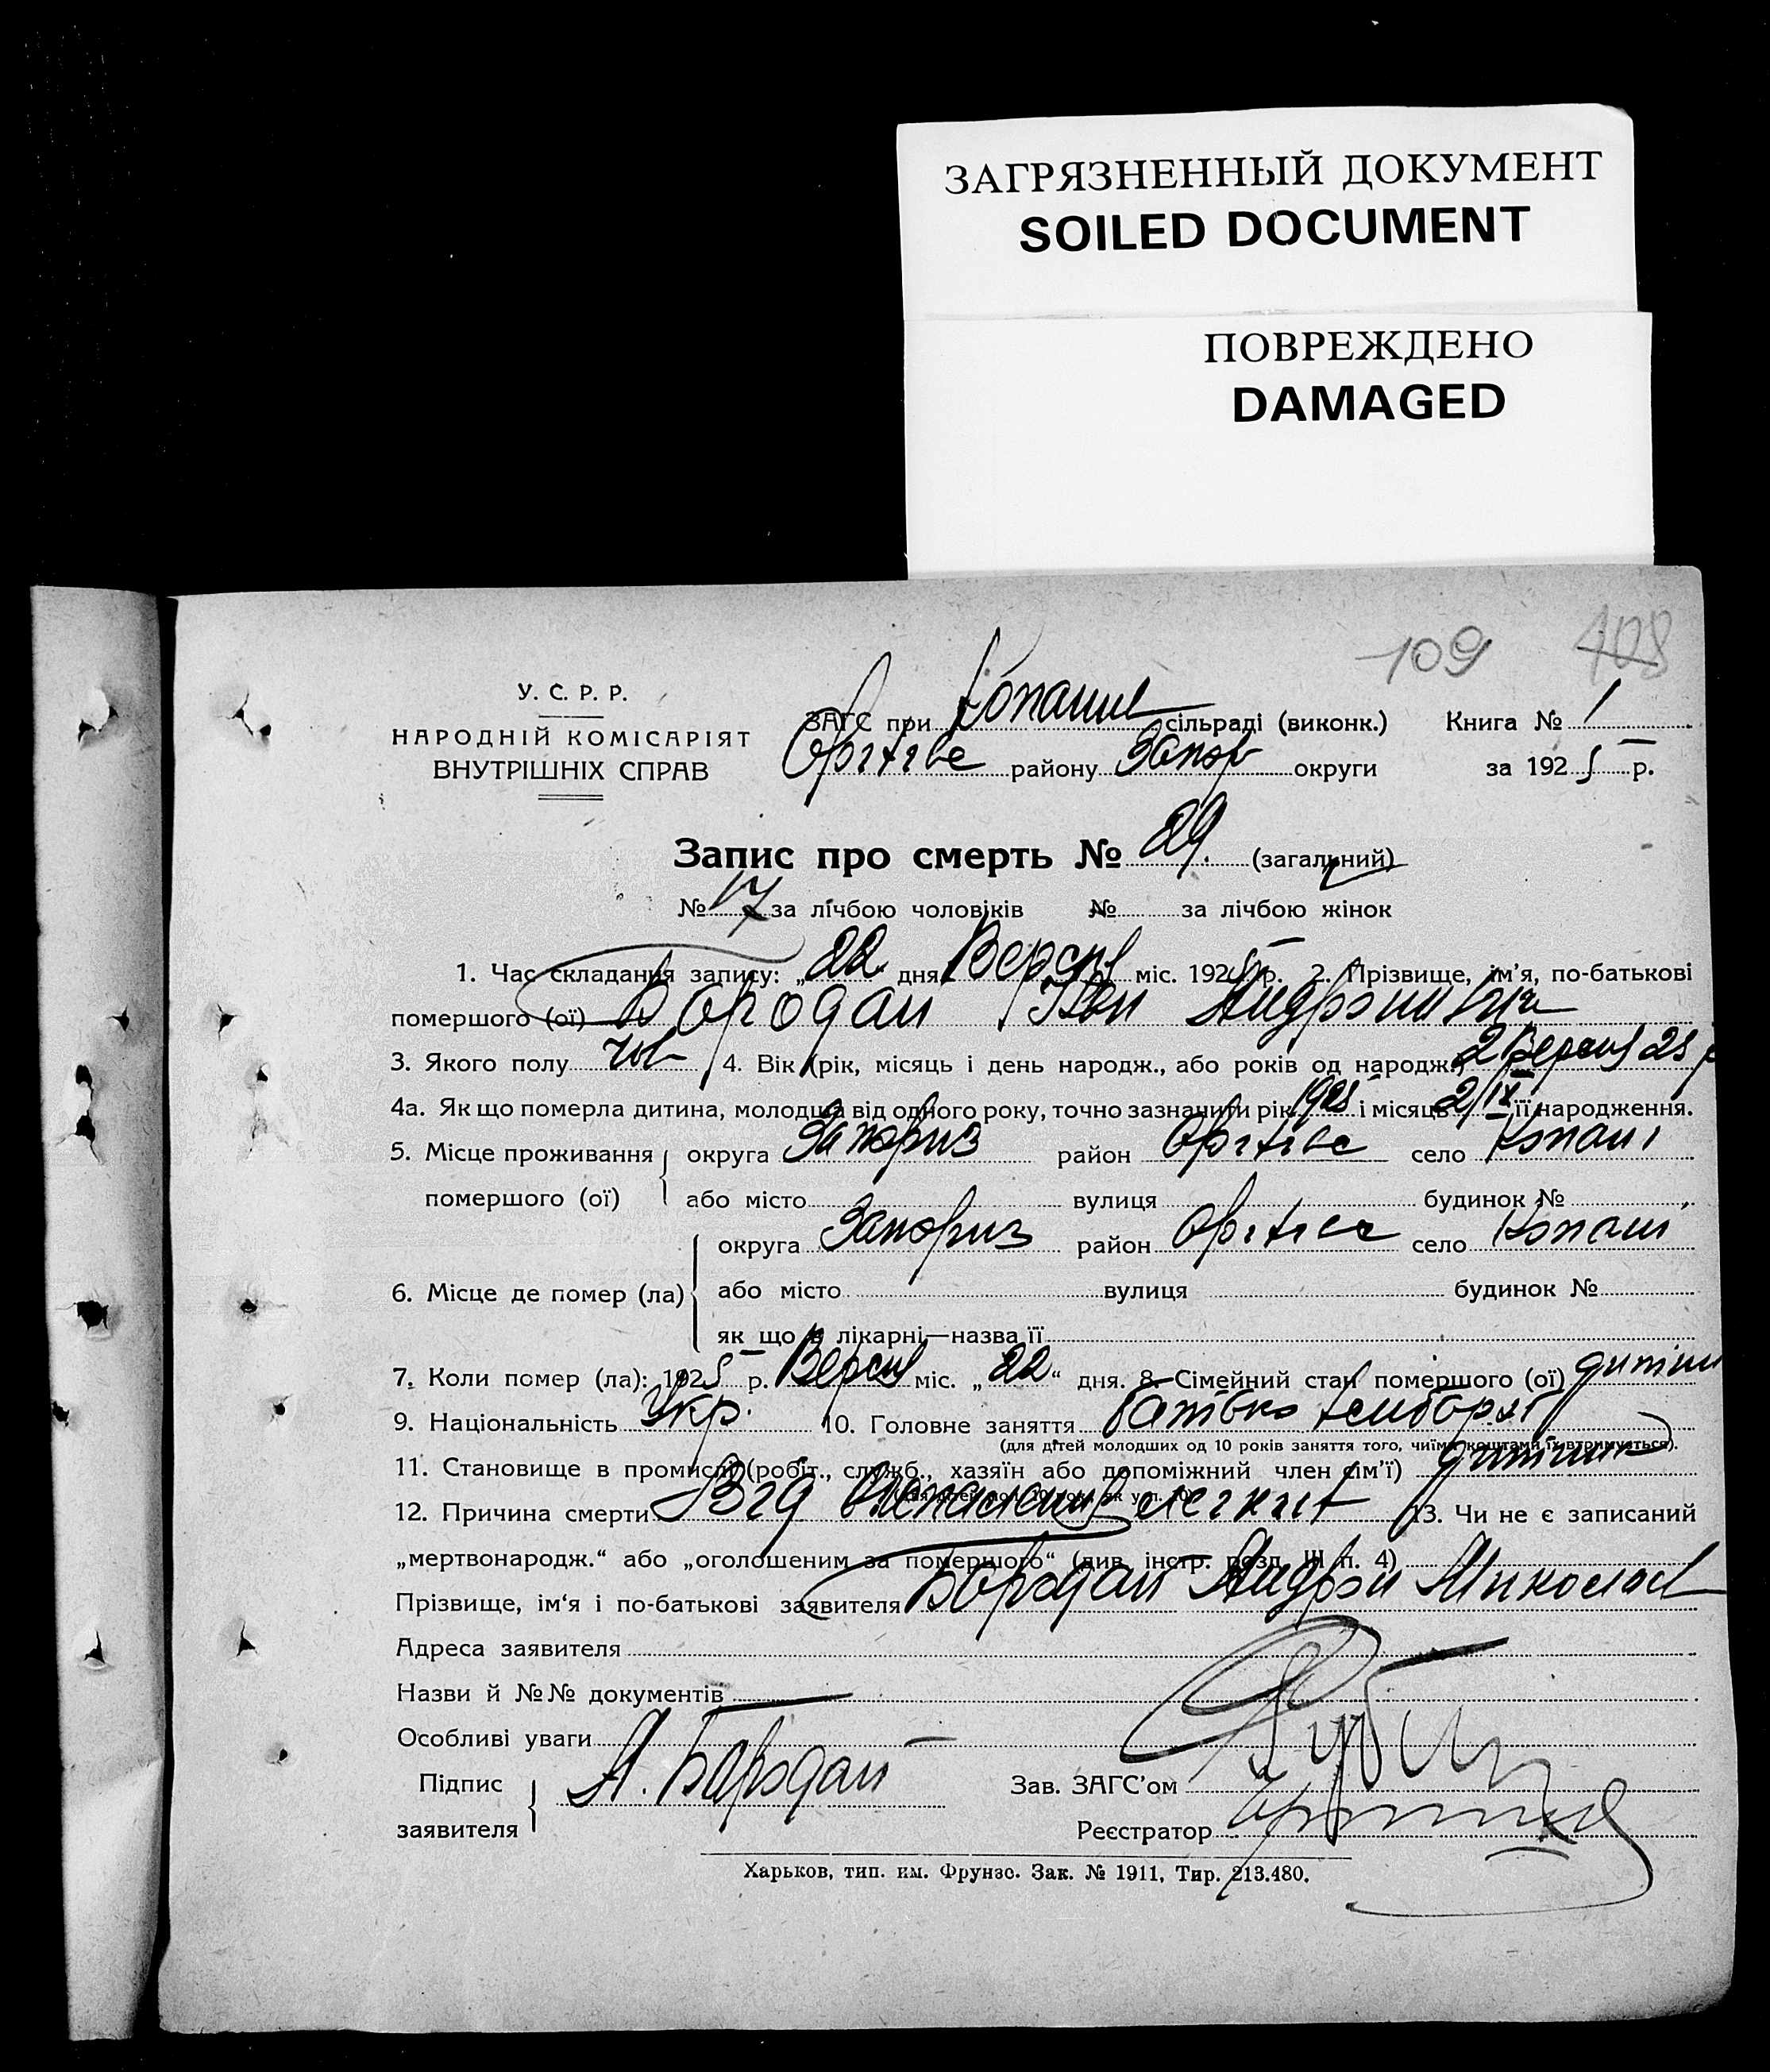 ЗАГРЯЗНЕННЫЙ ДОКУМЕНТ
SOILED DOCUMENT
ПОВРЕЖДЕНО
DAMAGED
109 108
У. С. Р. Р.
НАРОДНІЙ КОМІСАРІЯТ
ВНУТРІШНІХ СПРАВ
ЗАГС при сільраді (виконк.) Книга № 1
району Запор округи за 1925 р.
Запис про смерть № 29. (загальний)
№ 17 за лічбою чоловіків № за лічбою жінок
1. Час складання запису: „22 дня Версн міс. 1925 р. 2. Прізвище, ім'я, по-батькові
помершого (ої) Бородай Іван Андрійович
3. Якого полу чол 4. Вік (рік, місяць і день народж., або років од народж.) 2 Версн 25 р
4а. Як що померла дитина, молодша від одного року, точно зазначити рік 1925 і місяць 2/IX її народження.
5. Місце проживання округа Запориз район село Копані
помершого (ої) або місто вулиця будинок №
округа Запориз район село Копані
6. Місце де помер (ла) або місто вулиця будинок №
як що в лікарні—назва її
7. Коли помер (ла): 1925 р. Версн міс. „22“ дня. 8. Сімейний стан помершого (ої) дитина
9. Національність Укр. 10. Головне заняття батько хлібороб
(для дітей молодших од 10 років заняття того, чиїми коштами їх втримується).
11. Становище в промислі (робіт., служб., хазяїн або допоміжний член сім'ї) дитина
12. Причина смерти Від легких 13. Чи не є записаний
„мертвонародж.“ або „оголошеним за помершого“ (див. інстр. розд. III п. 4)
Прізвище, ім'я і по-батькові заявителя Бородай Андрій Миколаєв
Адреса заявителя
Назви й №№ документів
Особливі уваги
Підпис А. Бородай Зав. ЗАГС'ом
заявителя Реєстратор
Харьков, тип. им. Фрунзе. Зак. № 1911, Тир. 213.480.